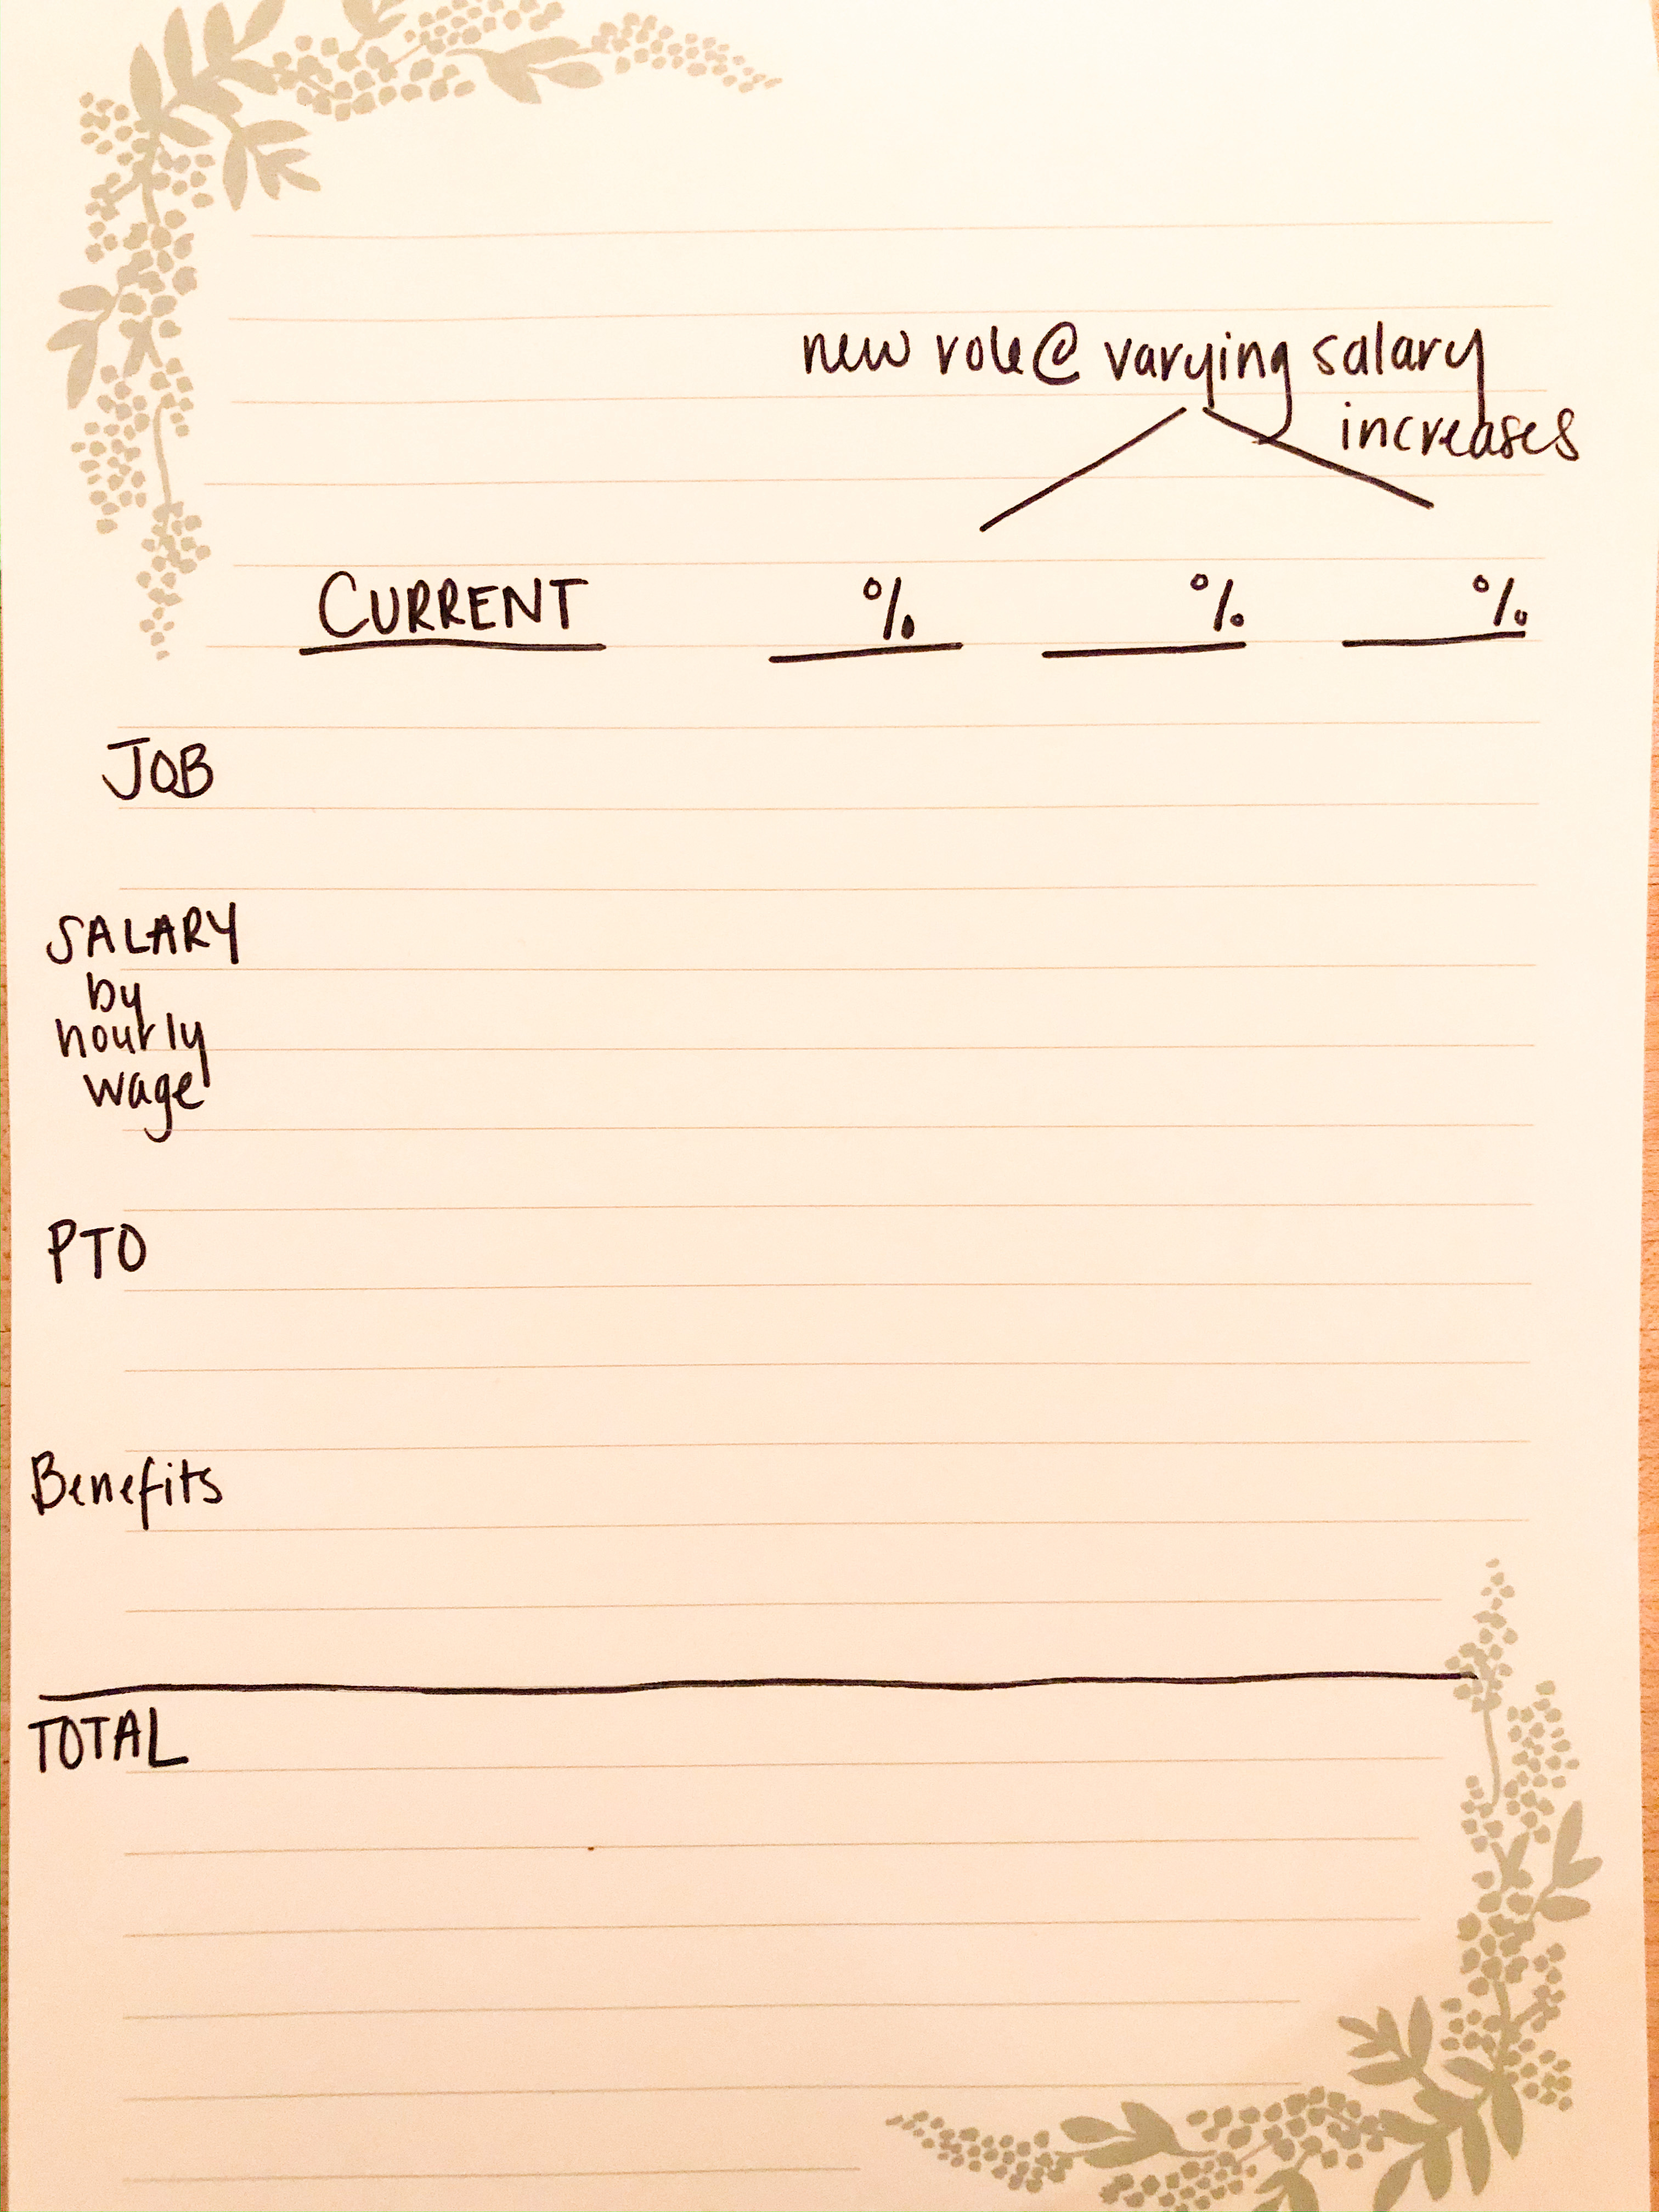 new role @ varying salary
increases
CURRENT % % %
JOB
SALARY
by
hourly
wage
PTO
Benefits
TOTAL